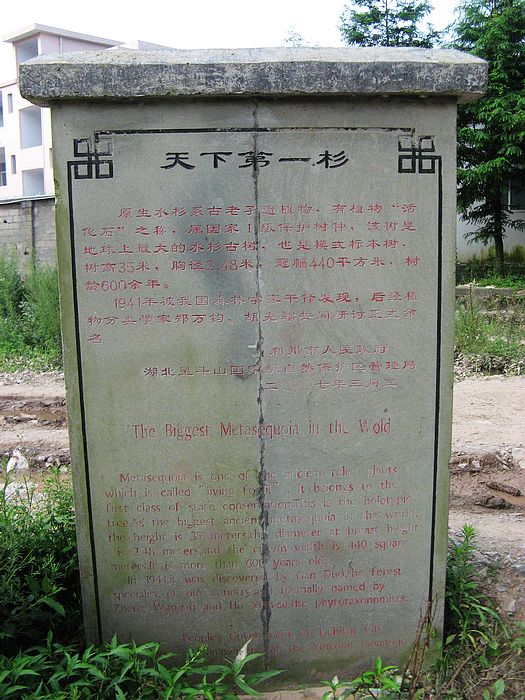 天下第一杉
原生水杉系古老孑遗植物，有植物“活
化石”之称，属国家I级保护树种，该树是
地球上最大的水杉古树，也是模式标本树，
树高35米，胸径2.48米，冠幅440平方米，树
龄600余年。
1941年被我国森林学家干铎发现，后经植
物分类学家郑万钧、胡先骕共同研讨正式命
名。
利川市人民政府
湖北星斗山国家级自然保护区管理局
二〇〇七年三月立
The Biggest Metasequoia in the Wold
Metasequoia is one of the ancient relies
which is called "living fossil". It belongs to the
first class of state conservation.This is the holotype
tree.As the biggest ancient metasequoia in the world,
the height is 35 meters,the diameter at breast height
is 2.48 meters,and the crown width is 440 square
meters.It is more than 600 years old.
In 1941,it was discovered by Gan Duo,the forest
specialist of our country,and formally named by
Zheng Wanjun and Hu the phyrotaxonomists.
People's Government of Lichuan City
of the Xingdou